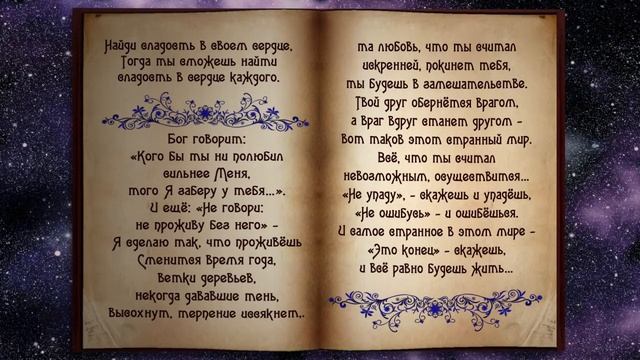 Найди сладость в своем сердце,
Тогда ты сможешь найти
сладость в сердце каждого.
Бог говорит:
«Кого бы ты ни полюбил
сильнее Меня,
того Я заберу у тебя...».
И ещё: «Не говори:
не проживу без него» -
Я сделаю так, что проживёшь
Сменится время года,
ветки деревьев,
некогда дававшие тень,
высохнут, терпение иссякнет,.
та любовь, что ты считал
искренней, покинет тебя,
ты будешь в замешательстве.
Твой друг обернётся врагом,
а враг вдруг станет другом -
вот таков этот странный мир.
Всё, что ты считал
невозможным, осуществится...
«Не упаду», - скажешь и упадёшь,
«Не ошибусь» - и ошибёшься.
И самое странное в этом мире -
«Это конец» - скажешь,
и всё равно будешь жить...